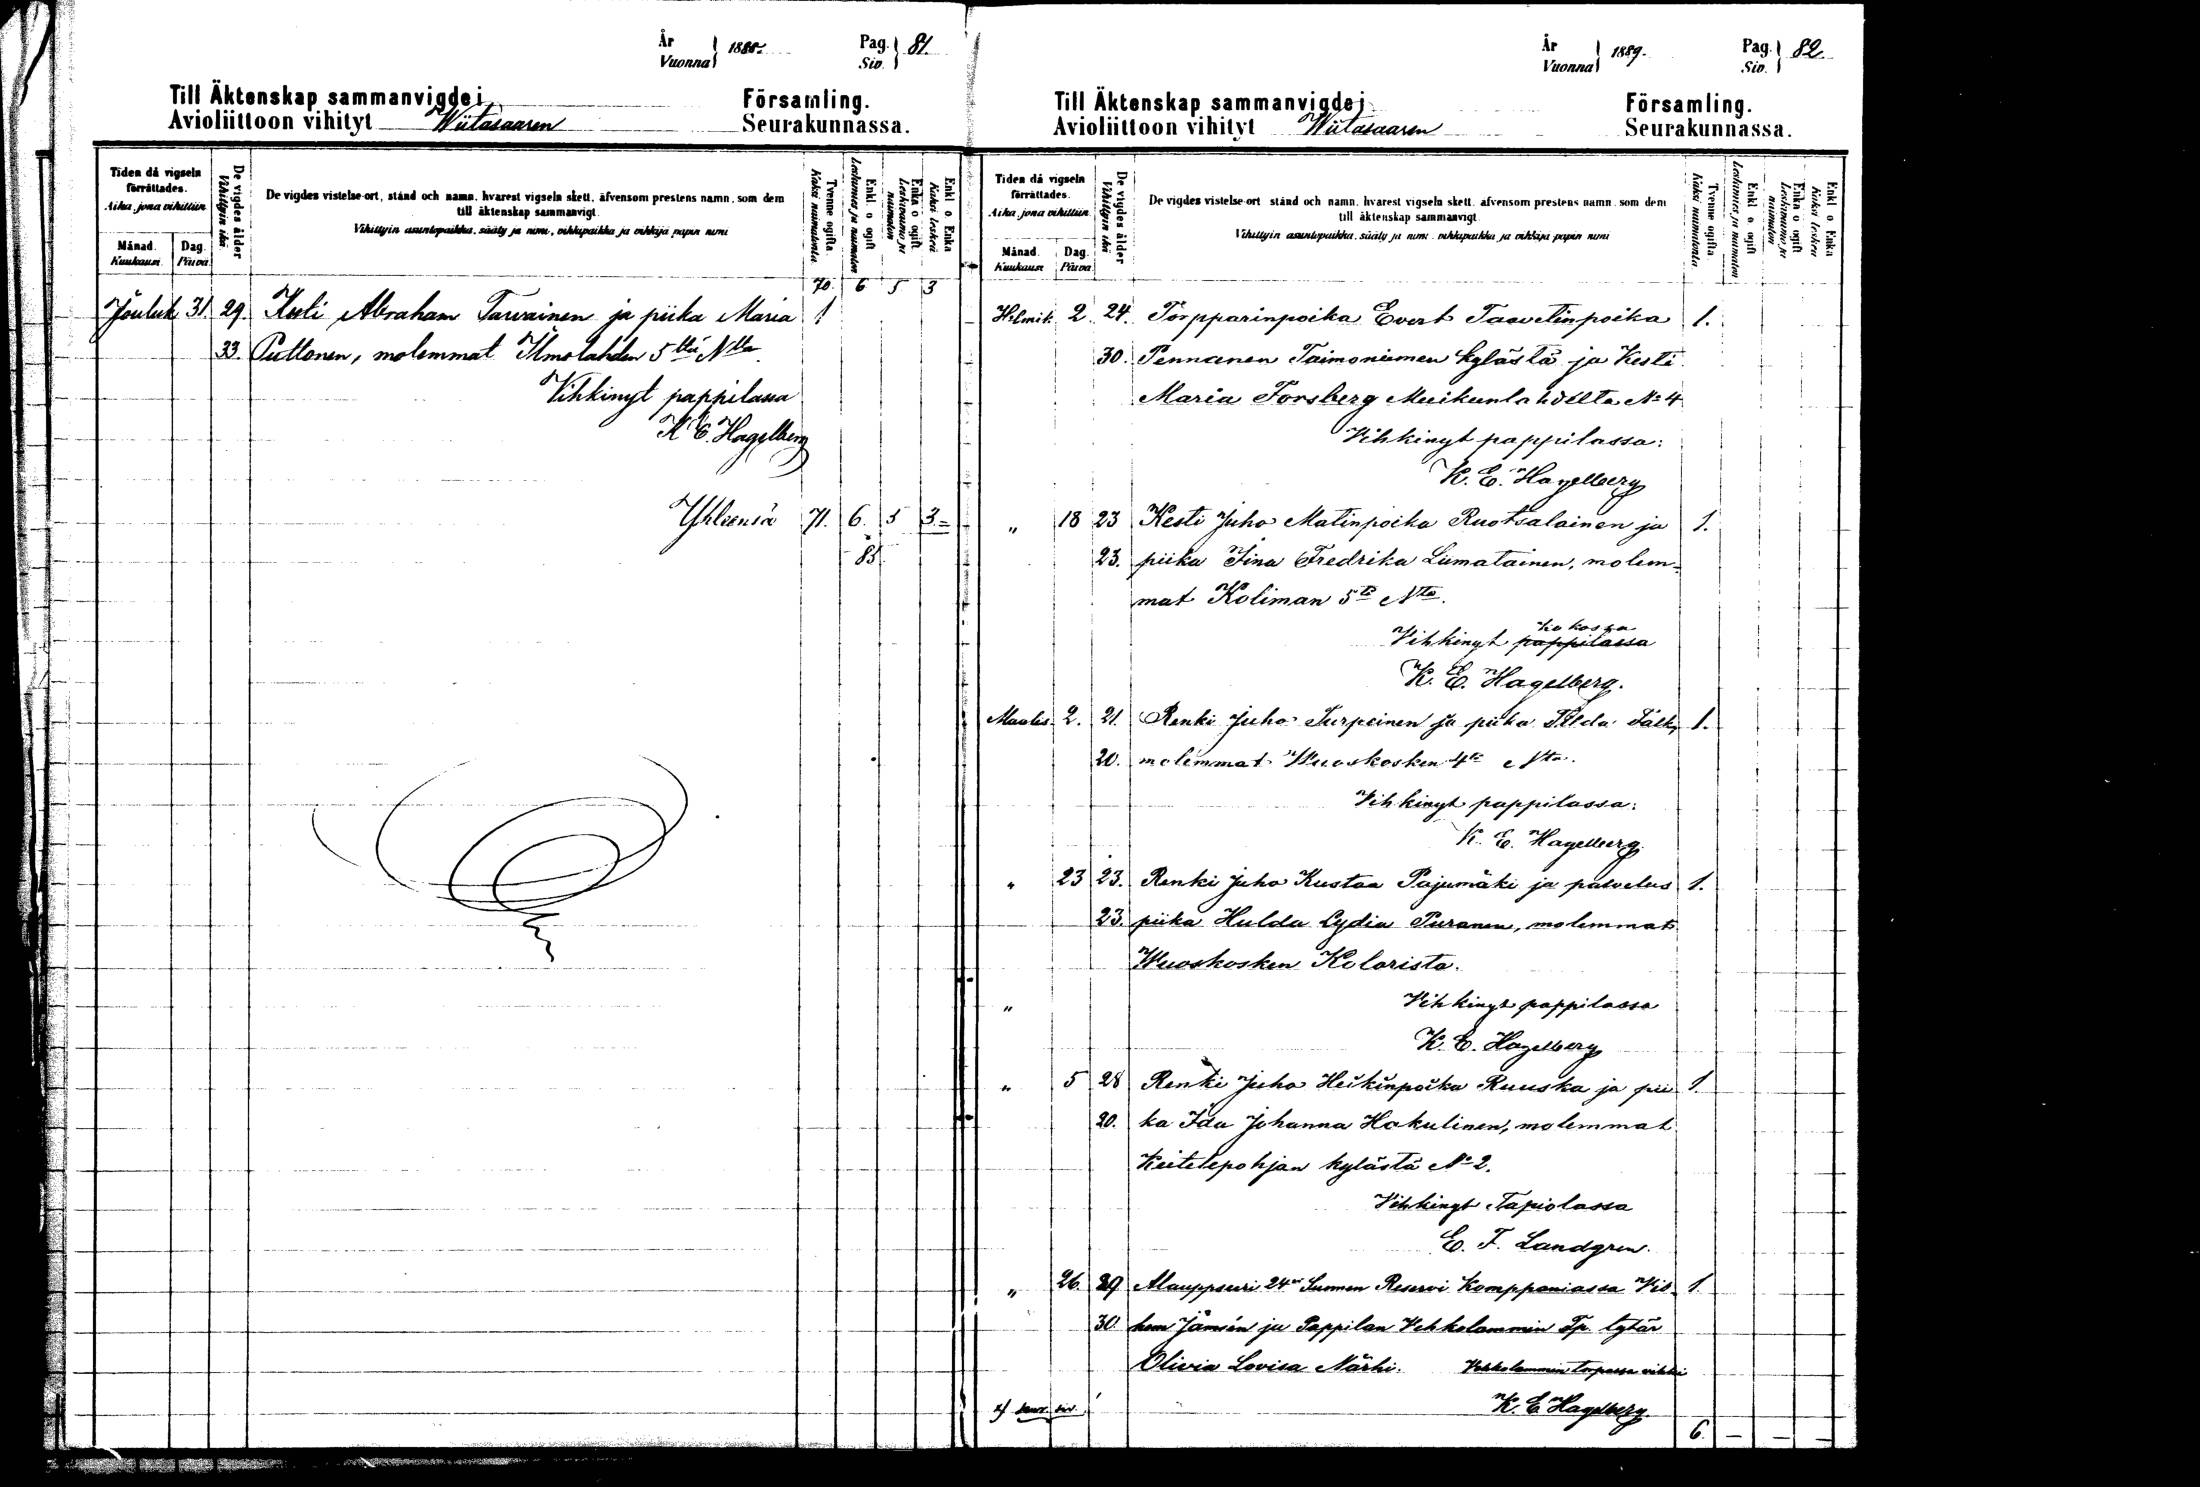 År
Vuonna } 1888.
Pag.
Siv. } 81.
Till Äktenskap sammanvigde i Församling.
Avioliittoon vihityt Wiitasaaren Seurakunnassa.
Tiden då vigseln förrättades.
Aika, jona vihittiin
Månad. Kuukausi
Dag. Päivä
De vigdes ålder
Vihittyin ikä
De vigdes vistelse-ort, stånd och namn, hvarest vigseln skett, äfvensom prestens namn, som dem
till äktenskap sammanvigt.
Vihittyin asuntopaikka, sääty ja nimi, vihkipaikka ja vihkijä papin nimi
Tvenne ogifta.
Kaksi naimatonta
Enkl. o ogift
Leskimies ja naimaton
Enka o ogift
Leskivaimo ja naimaton
Enkl. o. Enka
Kaksi leskeä
70. 6 5 3
Jouluk 31. 29. Kesti Abraham Tarvainen ja piika Maria 1
33. Puttonen, molemmat Ilmolahden 5 ltä Nlta
Vihkinyt pappilassa
K E. Hagelberg
Yhteensä 71. 6. 5 3
85
År
Vuonna } 1889.
Pag.
Siv. } 82.
Till Äktenskap sammanvigde i Församling.
Avioliittoon vihityt Wiitasaaren Seurakunnassa.
Tiden då vigseln förrättades.
Aika, jona vihittiin
Månad. Kuukausi
Dag. Päivä
De vigdes ålder
Vihittyin ikä
De vigdes vistelse-ort stånd och namn, hvarest vigseln skett, äfvensom prestens namn, som dem
till äktenskap sammanvigt.
Vihittyin asuntopaikka, sääty ja nimi, vihkipaikka ja vihkijä papin nimi
Tvenne ogifta.
Kaksi naimatonta
Enkl. o ogift
Leskimies ja naimaton
Enka o ogift
Leskivaimo ja naimaton
Enkl. o. Enka
Kaksi leskeä
Helmik. 2. 24. Torpparinpoika Evert Taavetinpoika 1.
30. Pennanen Taimoniemen kylästä ja Kesti
Maria Forsberg Muikunlahdelta No 4
Vihkinyt pappilassa:
K. E. Hagelberg
„ 18 23 Kesti Juho Matinpoika Ruotsalainen ja 1.
23. piika Iina Fredrika Liimatainen, molem-
mat Koliman 5ta Nta.
kokossa
Vihkinyt pappilassa
K. E. Hagelberg.
Maalis. 2. 21. Renki Juho Turpeinen ja piika Tilda Fälk, 1.
20. molemmat Wuoskosken 4ta Nta.
Vihkinyt pappilassa:
K. E. Hagelberg.
„ 23 23. Renki Juho Kustaa Pajumäki ja palvelus 1.
23. piika Hulda Lydia Puranen, molemmat
Wuoskosken Kolarista.
„ Vihkinyt pappilassa
K. E. Hagelberg
„ 5 28 Renki Juho Heikinpoika Ruuska ja pii 1.
20. ka Ida Johanna Hakulinen, molemmat
Keitelepohjan kylästä No 2.
Vihkinyt Tapiolassa
E. F. Landgren.
„ 26. 29 Alauppseeri 24 Suomen Reservi Komppaniassa Vil- 1.
30. hem Jämsén ja Pappilan Vehkolammin Tp. tytär
Olivia Lovisa Närhi. Vehkolammin torpassa vihki
K. E Hagelberg.
x) seur. siv.
6. — — —